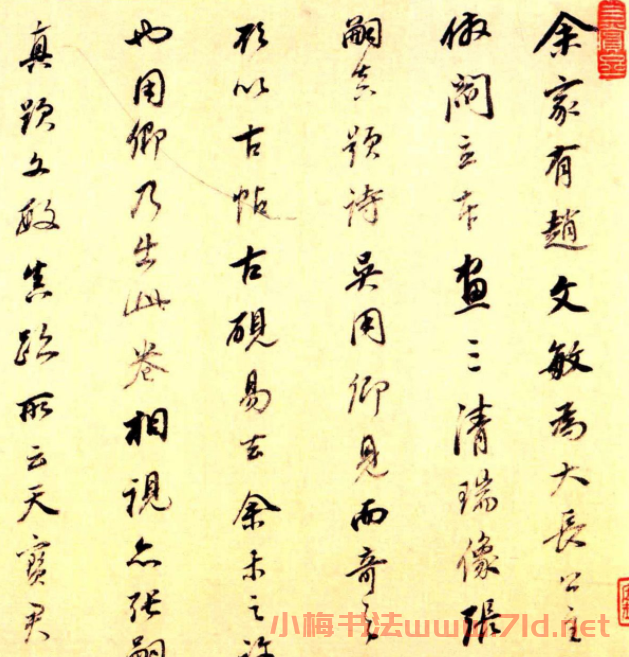 余家有趙文敏為大長公主
倣閻立本畫三清瑞像張
嗣真題詩吳用卿見而奇之
欲以古帖古硯易去余未之許
也用卿乃出此卷相視亦張嗣
真題文敏真跡所云天寶君
小梅书法www.7ld.net